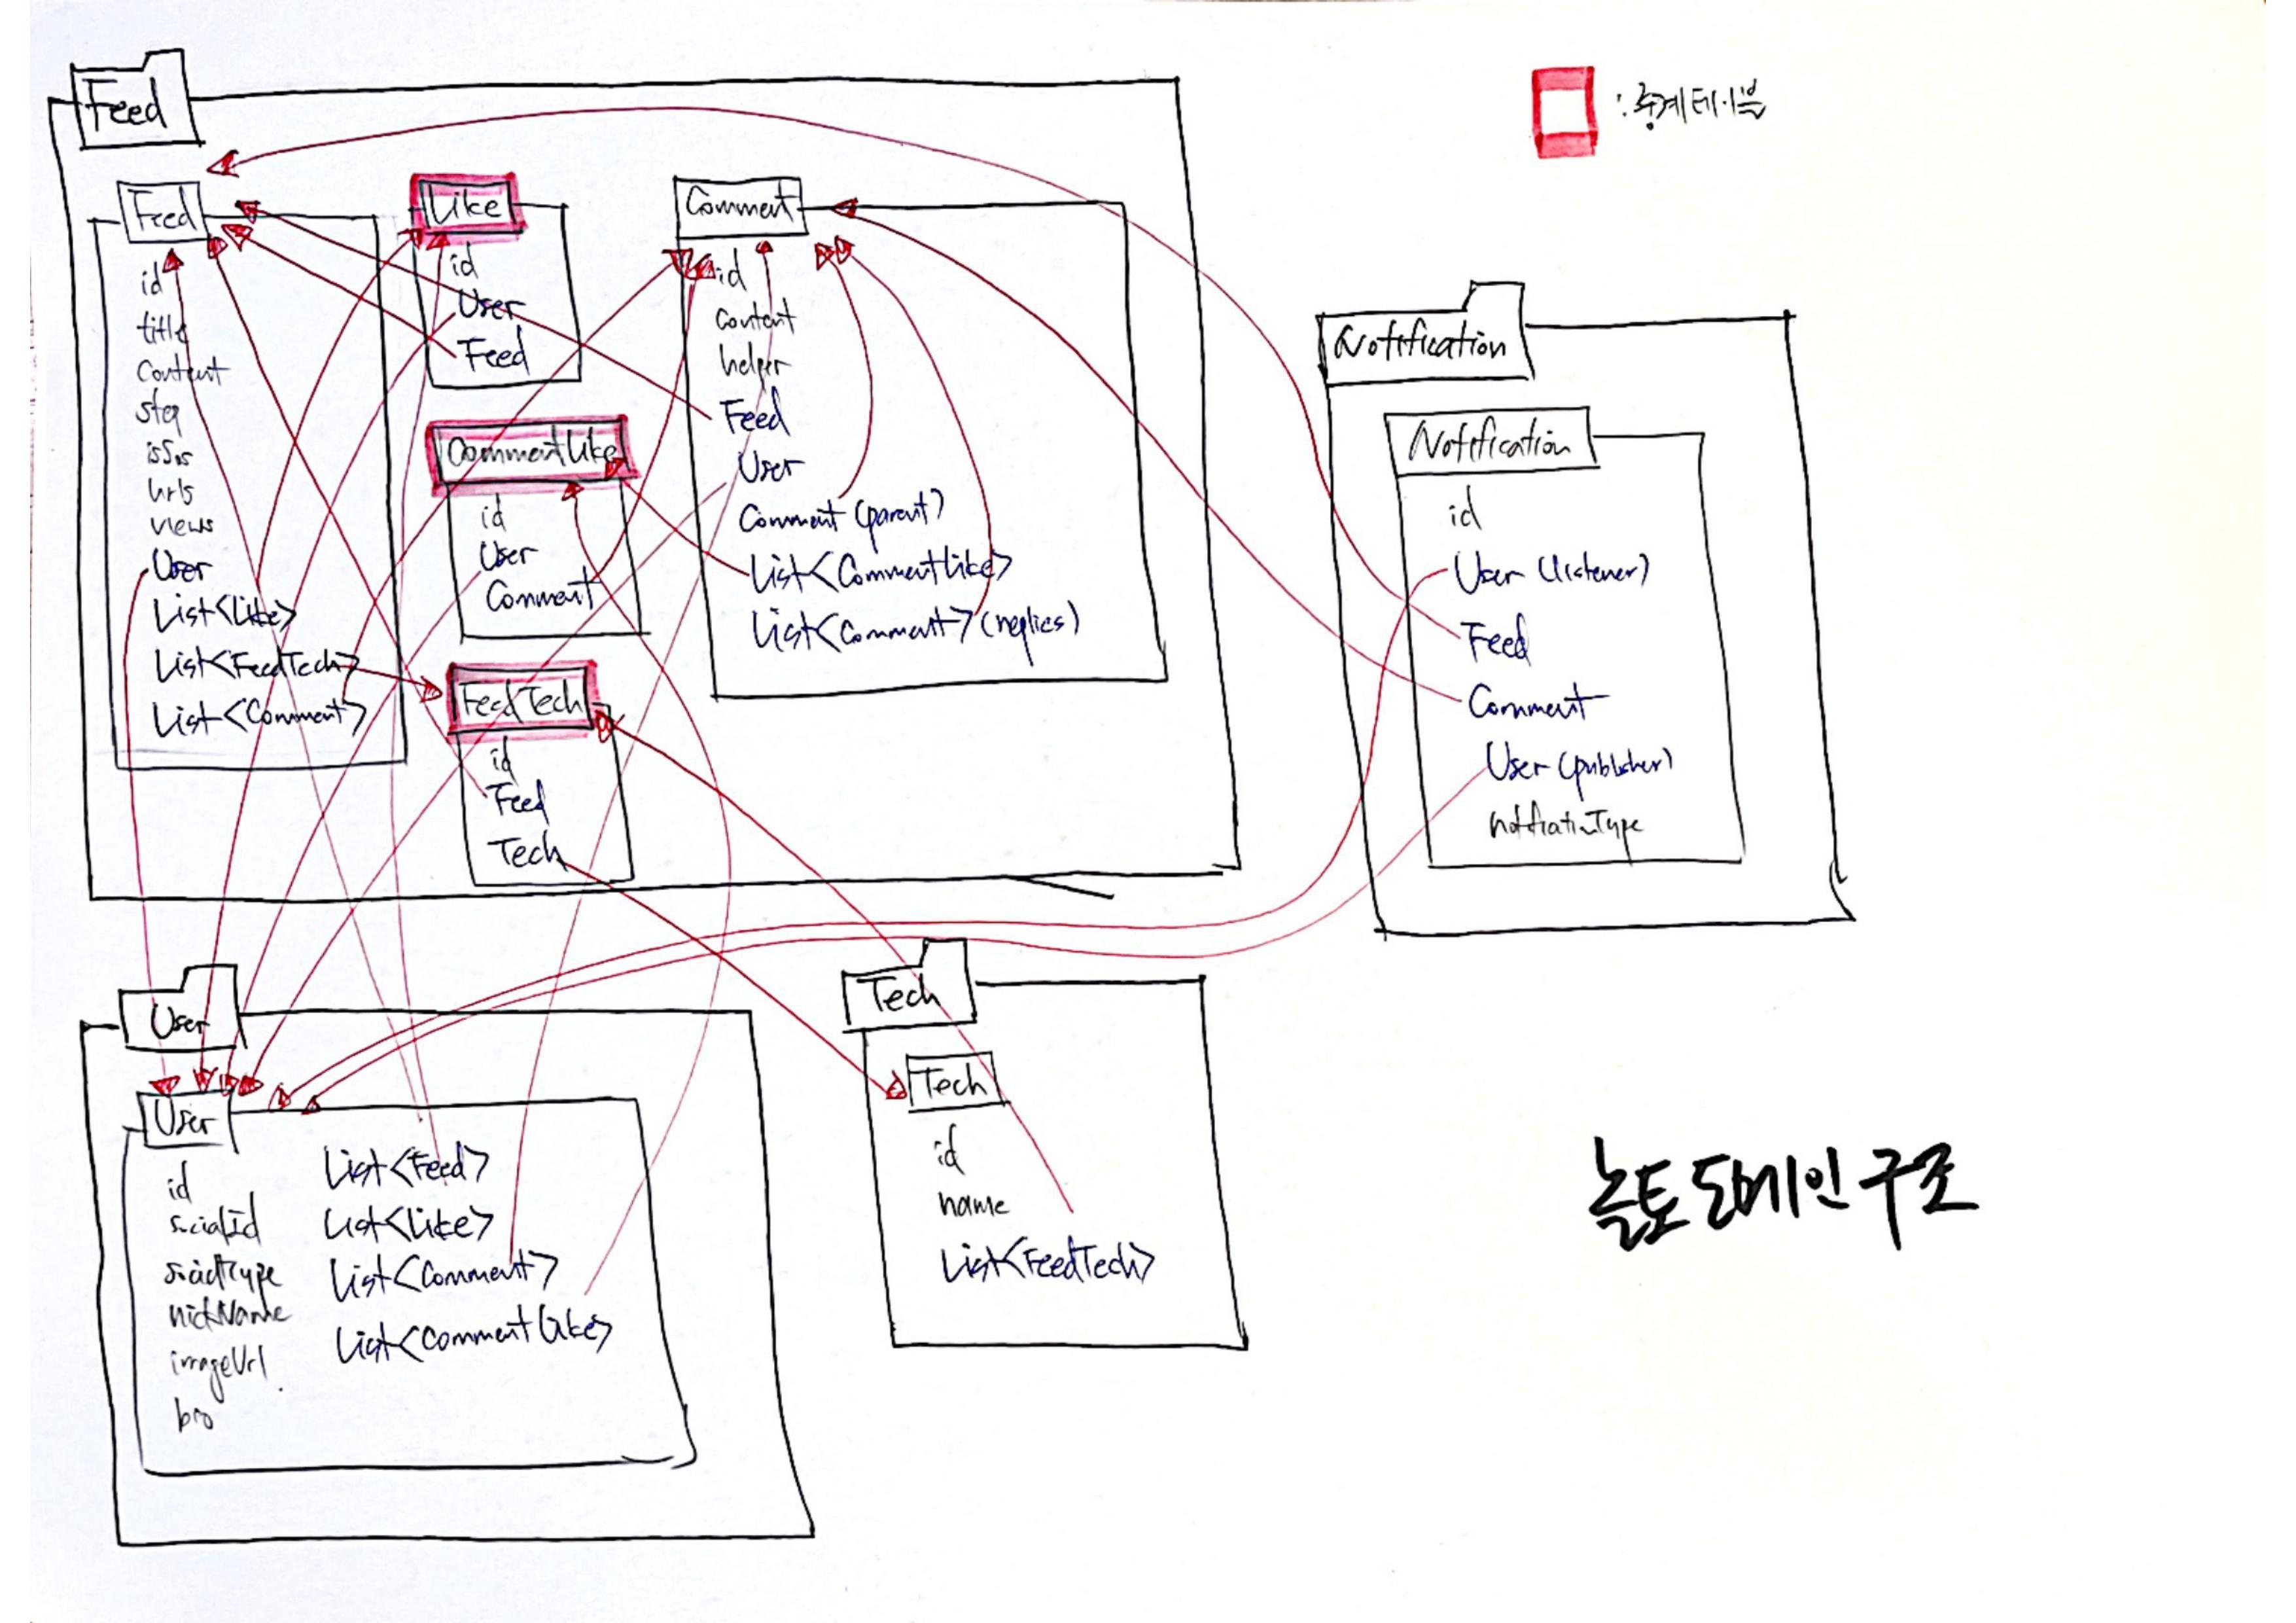 Feed
Feed
id
title
Content
step
isSos
urls
views
User
List<Like>
List<FeedTech>
List<Comment>
Like
id
User
Feed
CommentLike
id
User
Comment
FeedTech
id
Feed
Tech
Comment
id
Content
helper
Feed
User
Comment (parent)
List<CommentLike>
List<Comment> (replies)
: 중계테이블
Notification
Notification
id
User (listener)
Feed
Comment
User (publisher)
notificationType
User
User
id
socialId
socialType
nickName
imageUrl
bio
List<Feed>
List<Like>
List<Comment>
List<CommentLike>
Tech
Tech
id
name
List<FeedTech>
놀토 도메인 구조